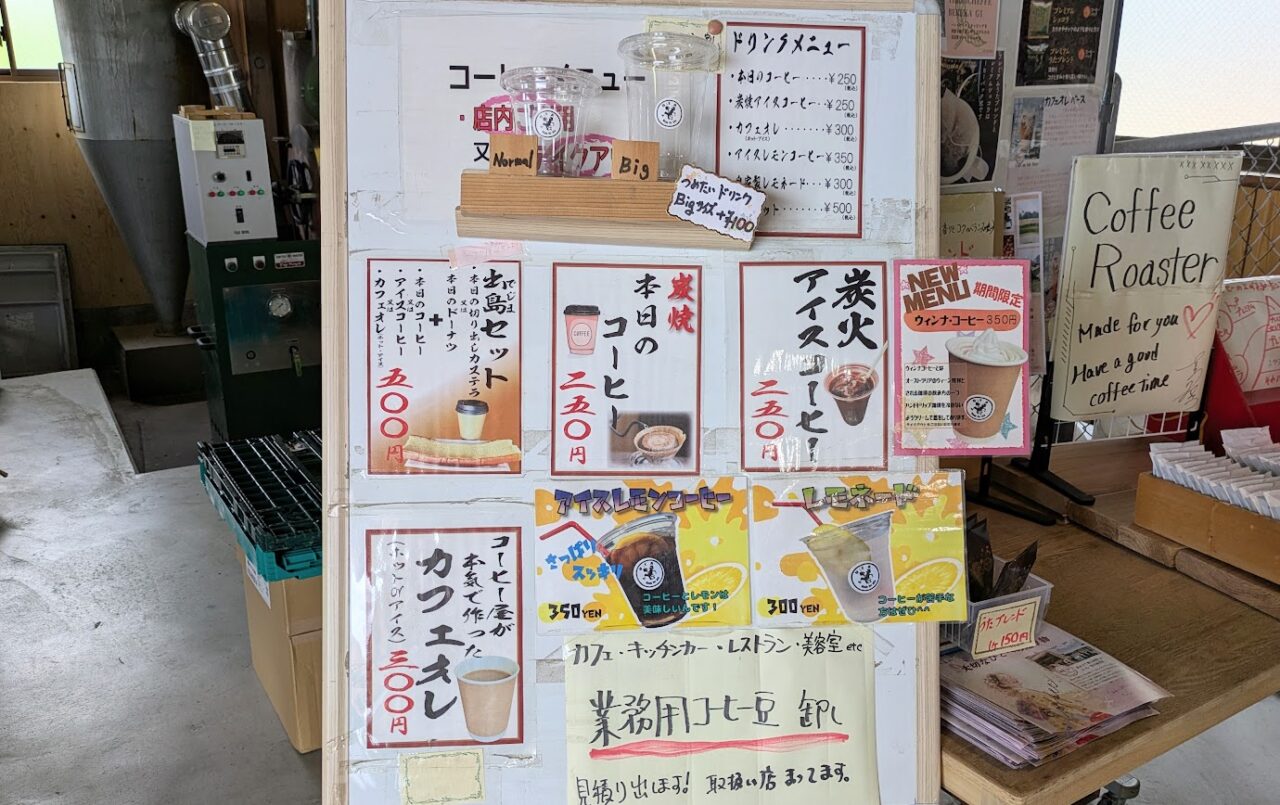 ドリンクメニュー
・本日のコーヒー････¥250
(税込)
・炭焼アイスコーヒー･･¥250
(税込)
・カフェオレ･･･････¥300
(ホット・アイス)
(税込)
・アイスレモンコーヒー¥350
(税込)
レモネード･･･¥300
(税込)
ット･････¥500
(税込)
・店内
Normal
Big
つめたいドリンク
Bigサイズ+¥100
出島セット
でじま
・本日の切り出しカステラ
又は
本日のドーナツ
+
・本日のコーヒー
又は
・アイスコーヒー
又は
・カフェオレ(ホット・アイス)
五〇〇円
炭焼
本日の
コーヒー
COFFEE
二五〇円
炭火
アイスコーヒー
二五〇円
NEW
MENU
期間限定
ウィンナ・コーヒー350円
ウィンナコーヒーとは
Coffee
Roaster
Made for you
Have a good
coffee time
カフェオレベース
コーヒー屋が
本気で作った
カフェオレ
(ホットorアイス)
三〇〇円
アイスレモンコーヒー
さっぱり
スッキリ
350YEN
コーヒーとレモンは
美味しいんです!
レモネード
300YEN
コーヒーが苦手な
方はぜひ^^
うたブレンド
1ケ150円
カフェ・キッチンカー・レストラン・美容室etc
業務用コーヒー豆 卸し
見積り出します! 取扱い店 まってます。